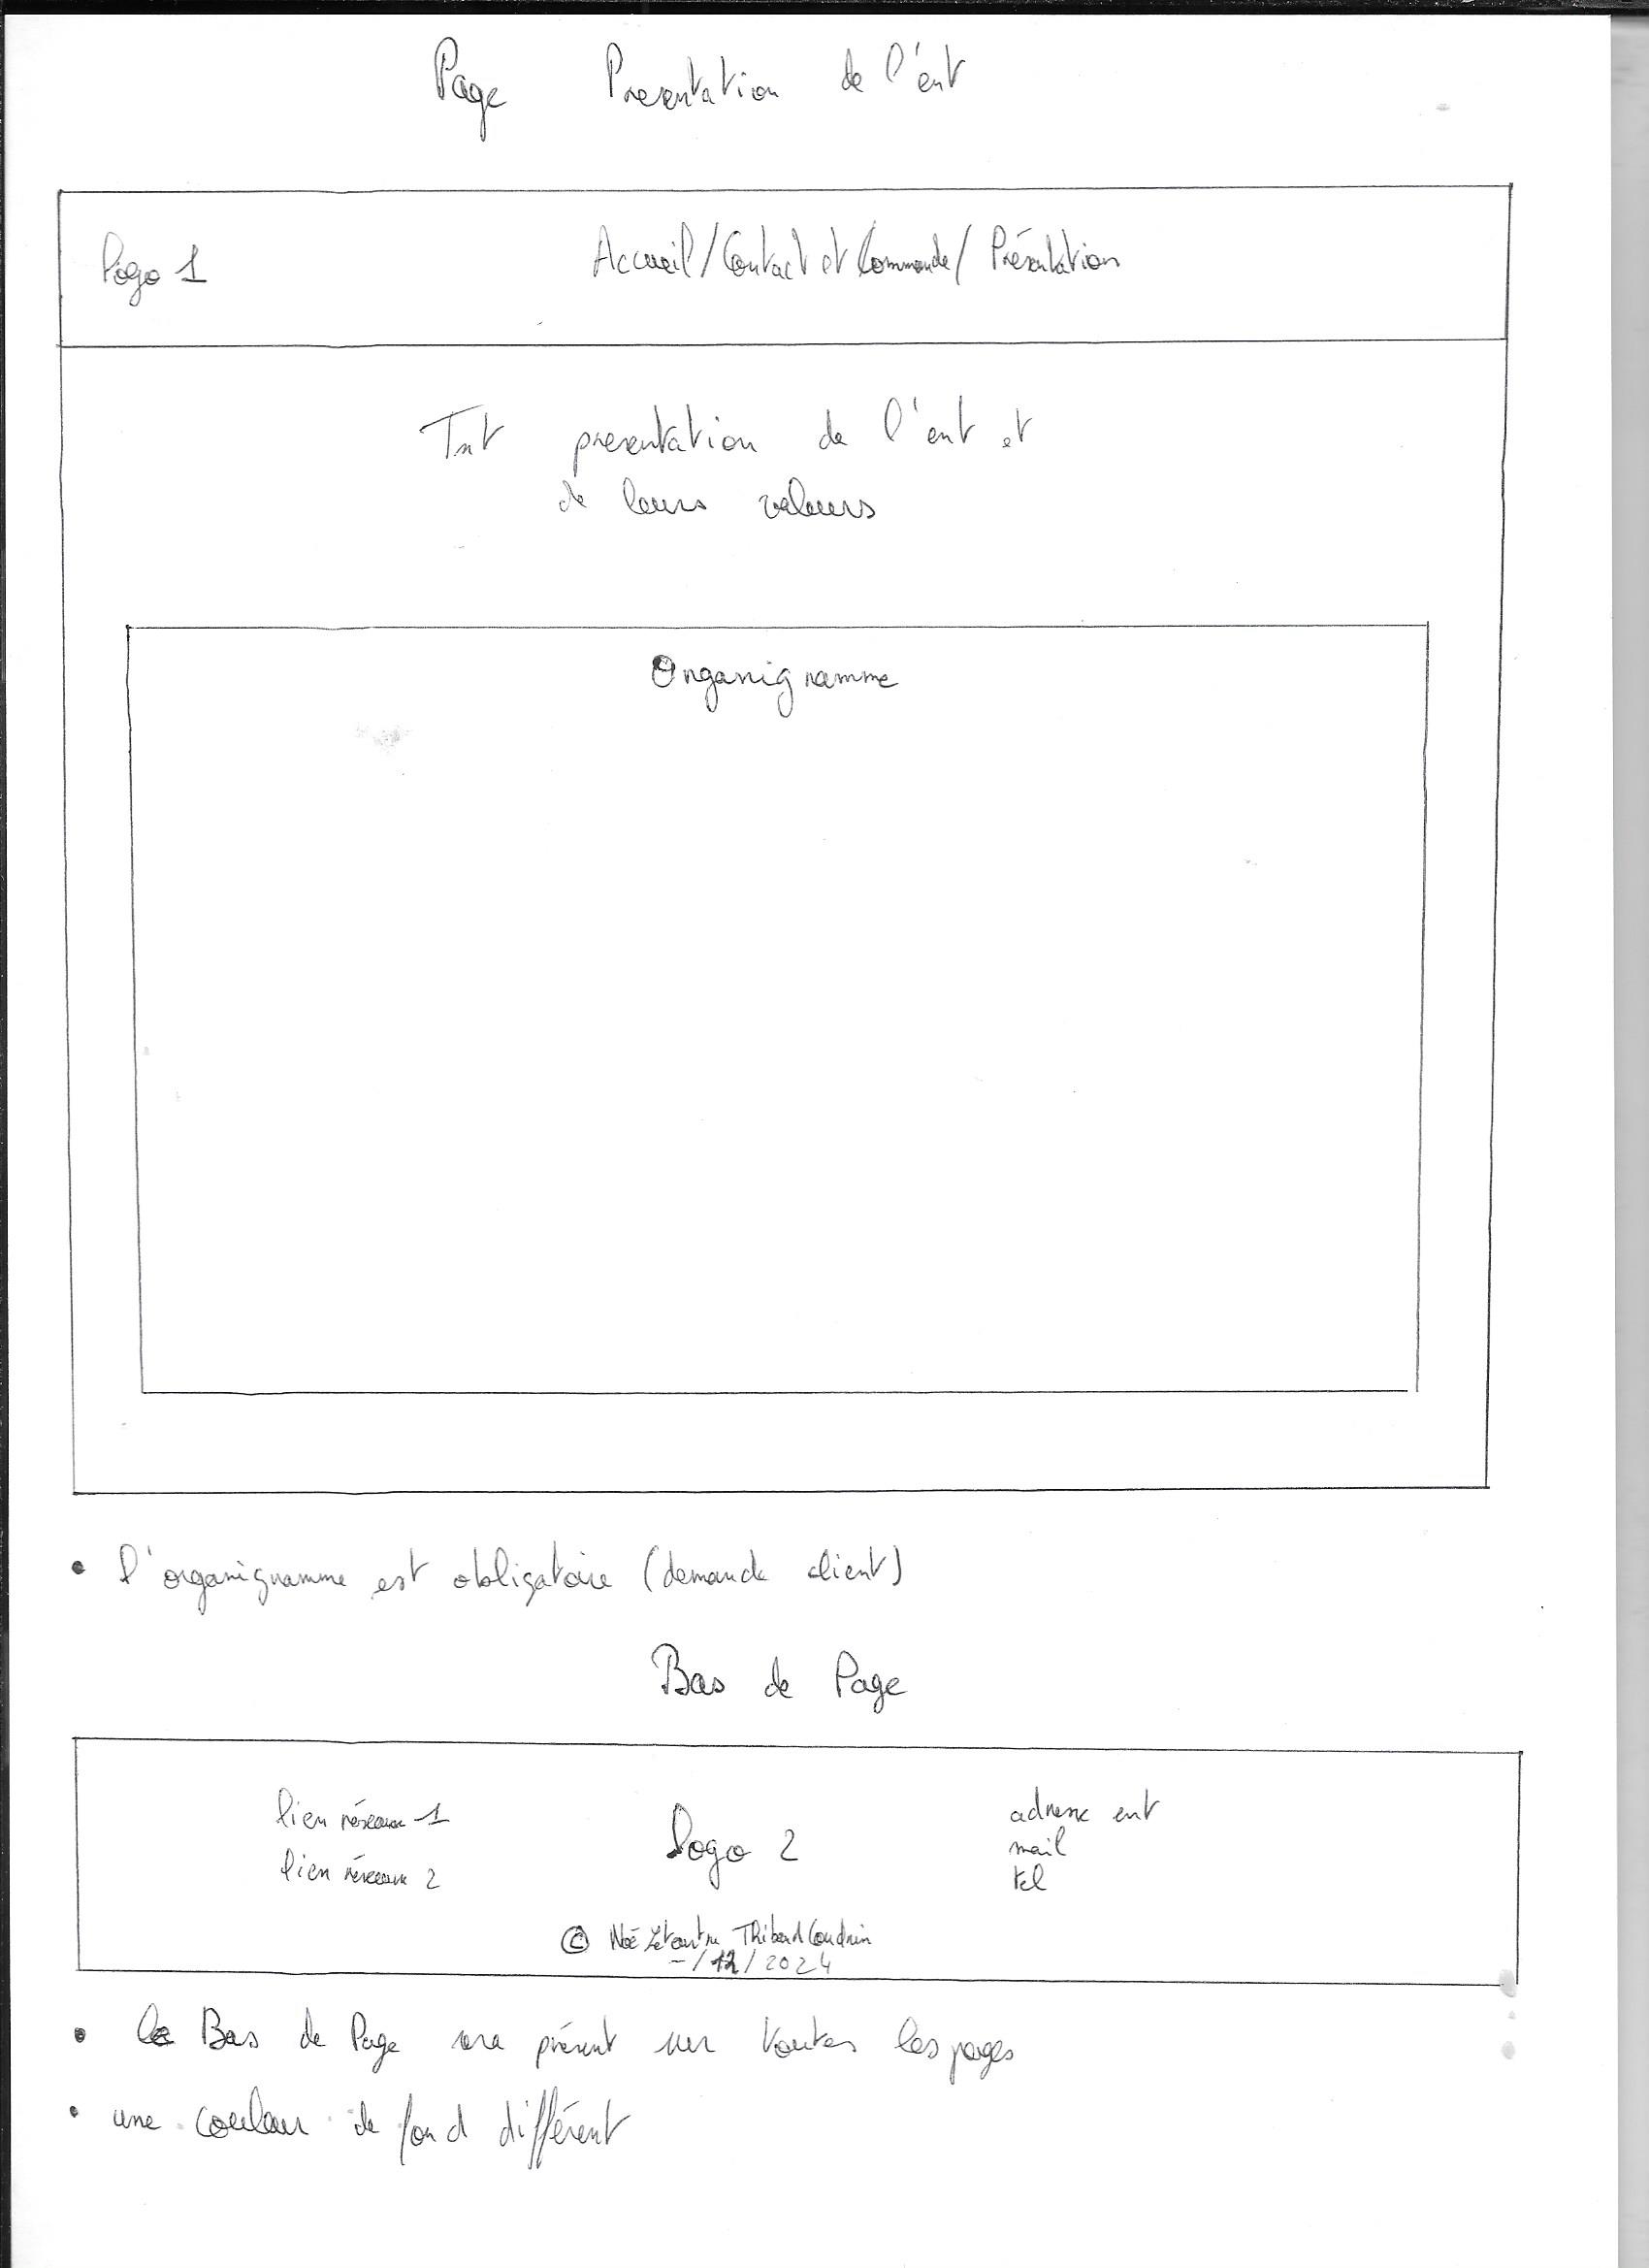 Page Presentation de l'ent
logo 1
Accueil/Contact et Commande/ Présentation
Txt presentation de l'ent et
de leurs valeurs
Organigramme
• l'organigramme est obligatoire (demande client)
Bas de Page
lien réseaux 1
lien réseaux 2
logo 2
adresse ent
mail
tel
© Noé Thibaud Coudrin
-/12/2024
• le Bas de Page sera présent sur toutes les pages
• une couleur de fond différent